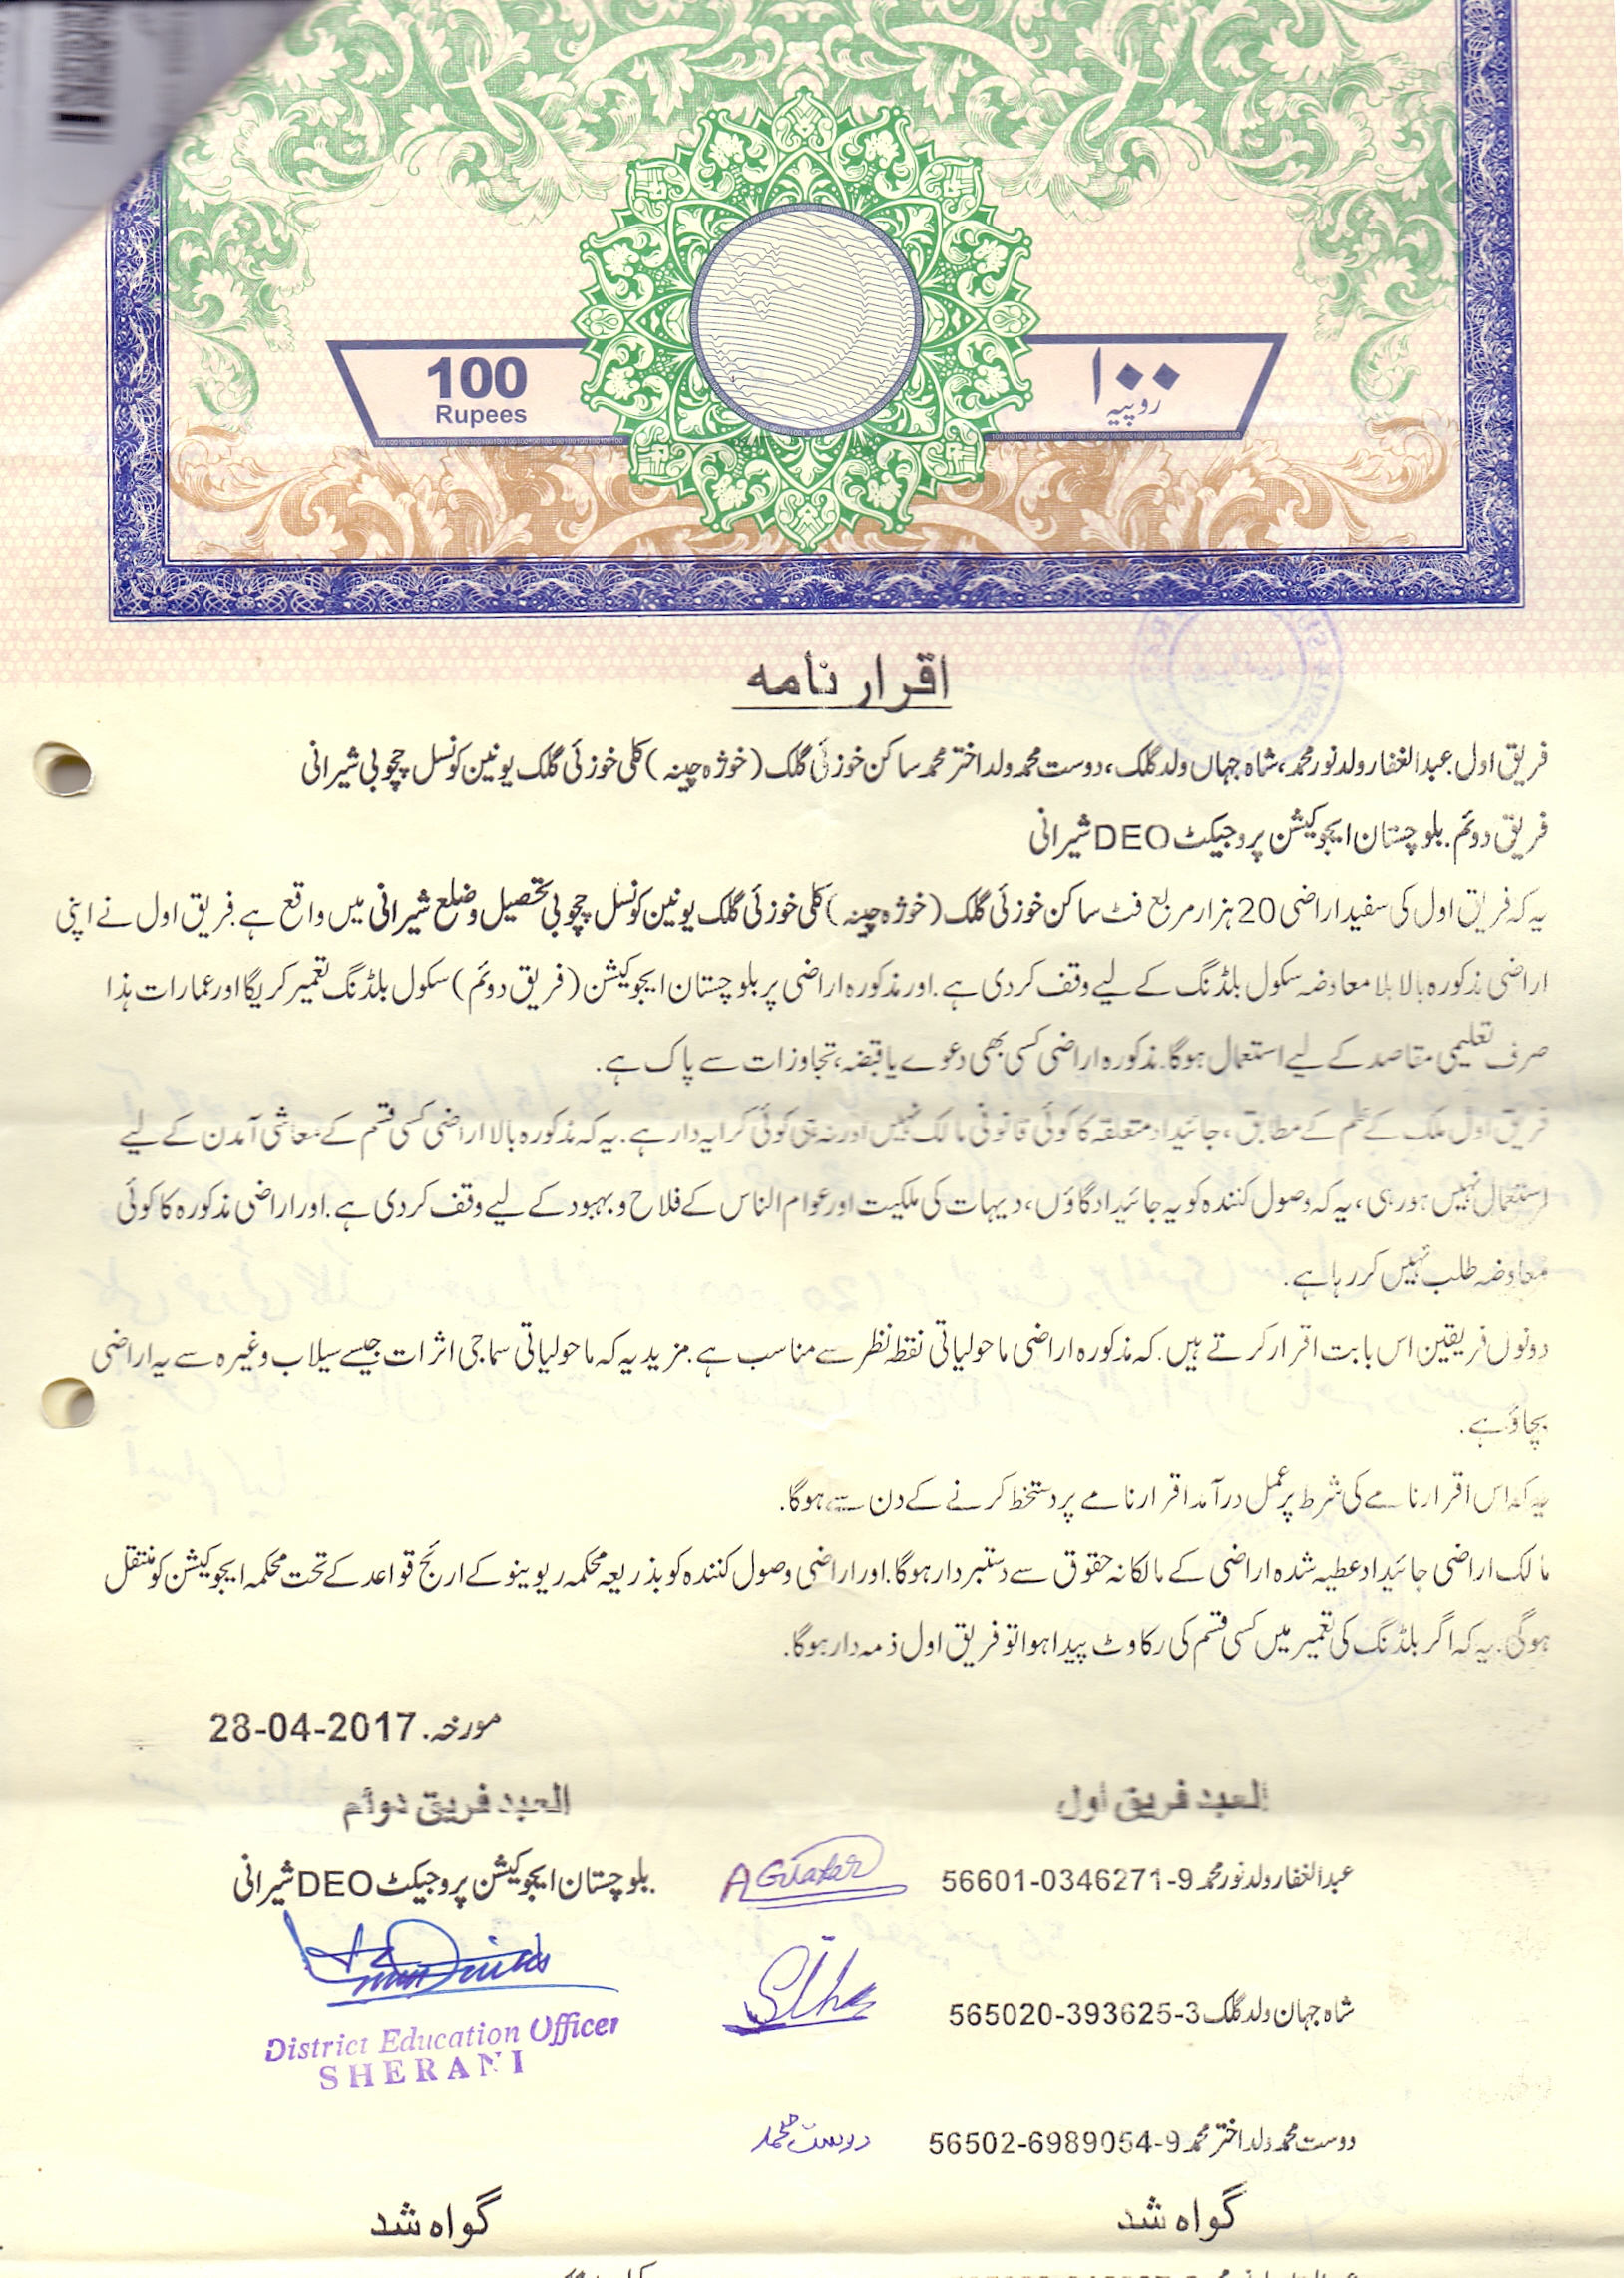 100
Rupees
۱۰۰
روپیہ
اقرار نامہ
فریق اول. عبدالغفار ولد نور محمد، شاہ جہاں ولد گلک، دوست محمد ولد اختر محمد ساکن خوزئی گلک (خوژہ چینہ) کلی خوزئی گلک یونین کونسل چچوبی شیرانی
فریق دوئم. بلوچستان ایجوکیشن پروجیکٹ DEO شیرانی
یہ کہ فریق اول کی سفید اراضی 20 ہزار مربع فٹ ساکن خوزئی گلک (خوژہ چینہ) کلی خوزئی گلک یونین کونسل چچوبی تحصیل و ضلع شیرانی میں واقع ہے. فریق اول نے اپنی
اراضی مذکورہ بالا بلا معاوضہ سکول بلڈنگ کے لیے وقف کردی ہے. اور مذکورہ اراضی پر بلوچستان ایجوکیشن (فریق دوئم) سکول بلڈنگ تعمیر کریگا اور عمارات ہذا
صرف تعلیمی مقاصد کے لیے استعمال ہوگا. مذکورہ اراضی کسی بھی دعوے یا قبضہ، تجاوزات سے پاک ہے.
فریق اول ملک کے علم کے مطابق، جائیداد متعلقہ کا کوئی قانونی مالک نہیں اور نہ ہی کوئی کرایہ دار ہے. یہ کہ مذکورہ بالا اراضی کسی قسم کے معاشی آمدن کے لیے
استعمال نہیں ہورہی، یہ کہ وصول کنندہ کو یہ جائیداد گاؤں، دیہات کی ملکیت اور عوام الناس کے فلاح و بہبود کے لیے وقف کردی ہے. اور اراضی مذکورہ کا کوئی
معاوضہ طلب نہیں کررہا ہے.
دونوں فریقین اس بابت اقرار کرتے ہیں. کہ مذکورہ اراضی ماحولیاتی نقطہ نظر سے مناسب ہے. مزید یہ کہ ماحولیاتی سماجی اثرات جیسے سیلاب وغیرہ سے یہ اراضی
بچاؤ ہے.
یہ کہ اس اقرار نامے کی شرط پر عمل درآمد اقرار نامے پر دستخط کرنے کے دن سے ہوگا.
مالک اراضی جائیداد عطیہ شدہ اراضی کے مالکانہ حقوق سے دستبردار ہوگا. اور اراضی وصول کنندہ کو بذریعہ محکمہ ریوینو کے ارئج قواعد کے تحت محکمہ ایجوکیشن کو منتقل
ہوگی. یہ کہ اگر بلڈنگ کی تعمیر میں کسی قسم کی رکاوٹ پیدا ہوا تو فریق اول ذمہ دار ہوگا.
مورخہ. 28-04-2017
العبد فریق اول
العبد فریق دوئم
عبدالغفار ولد نور محمد 56601-0346271-9
A Gʜafar
بلوچستان ایجوکیشن پروجیکٹ DEO شیرانی.
شاہ جہان ولد گلک 565020-393625-3
District Education Officer
SHERANI
دوست محمد ولد اختر محمد 56502-6989054-9
دوست محمد
گواہ شد
گواہ شد